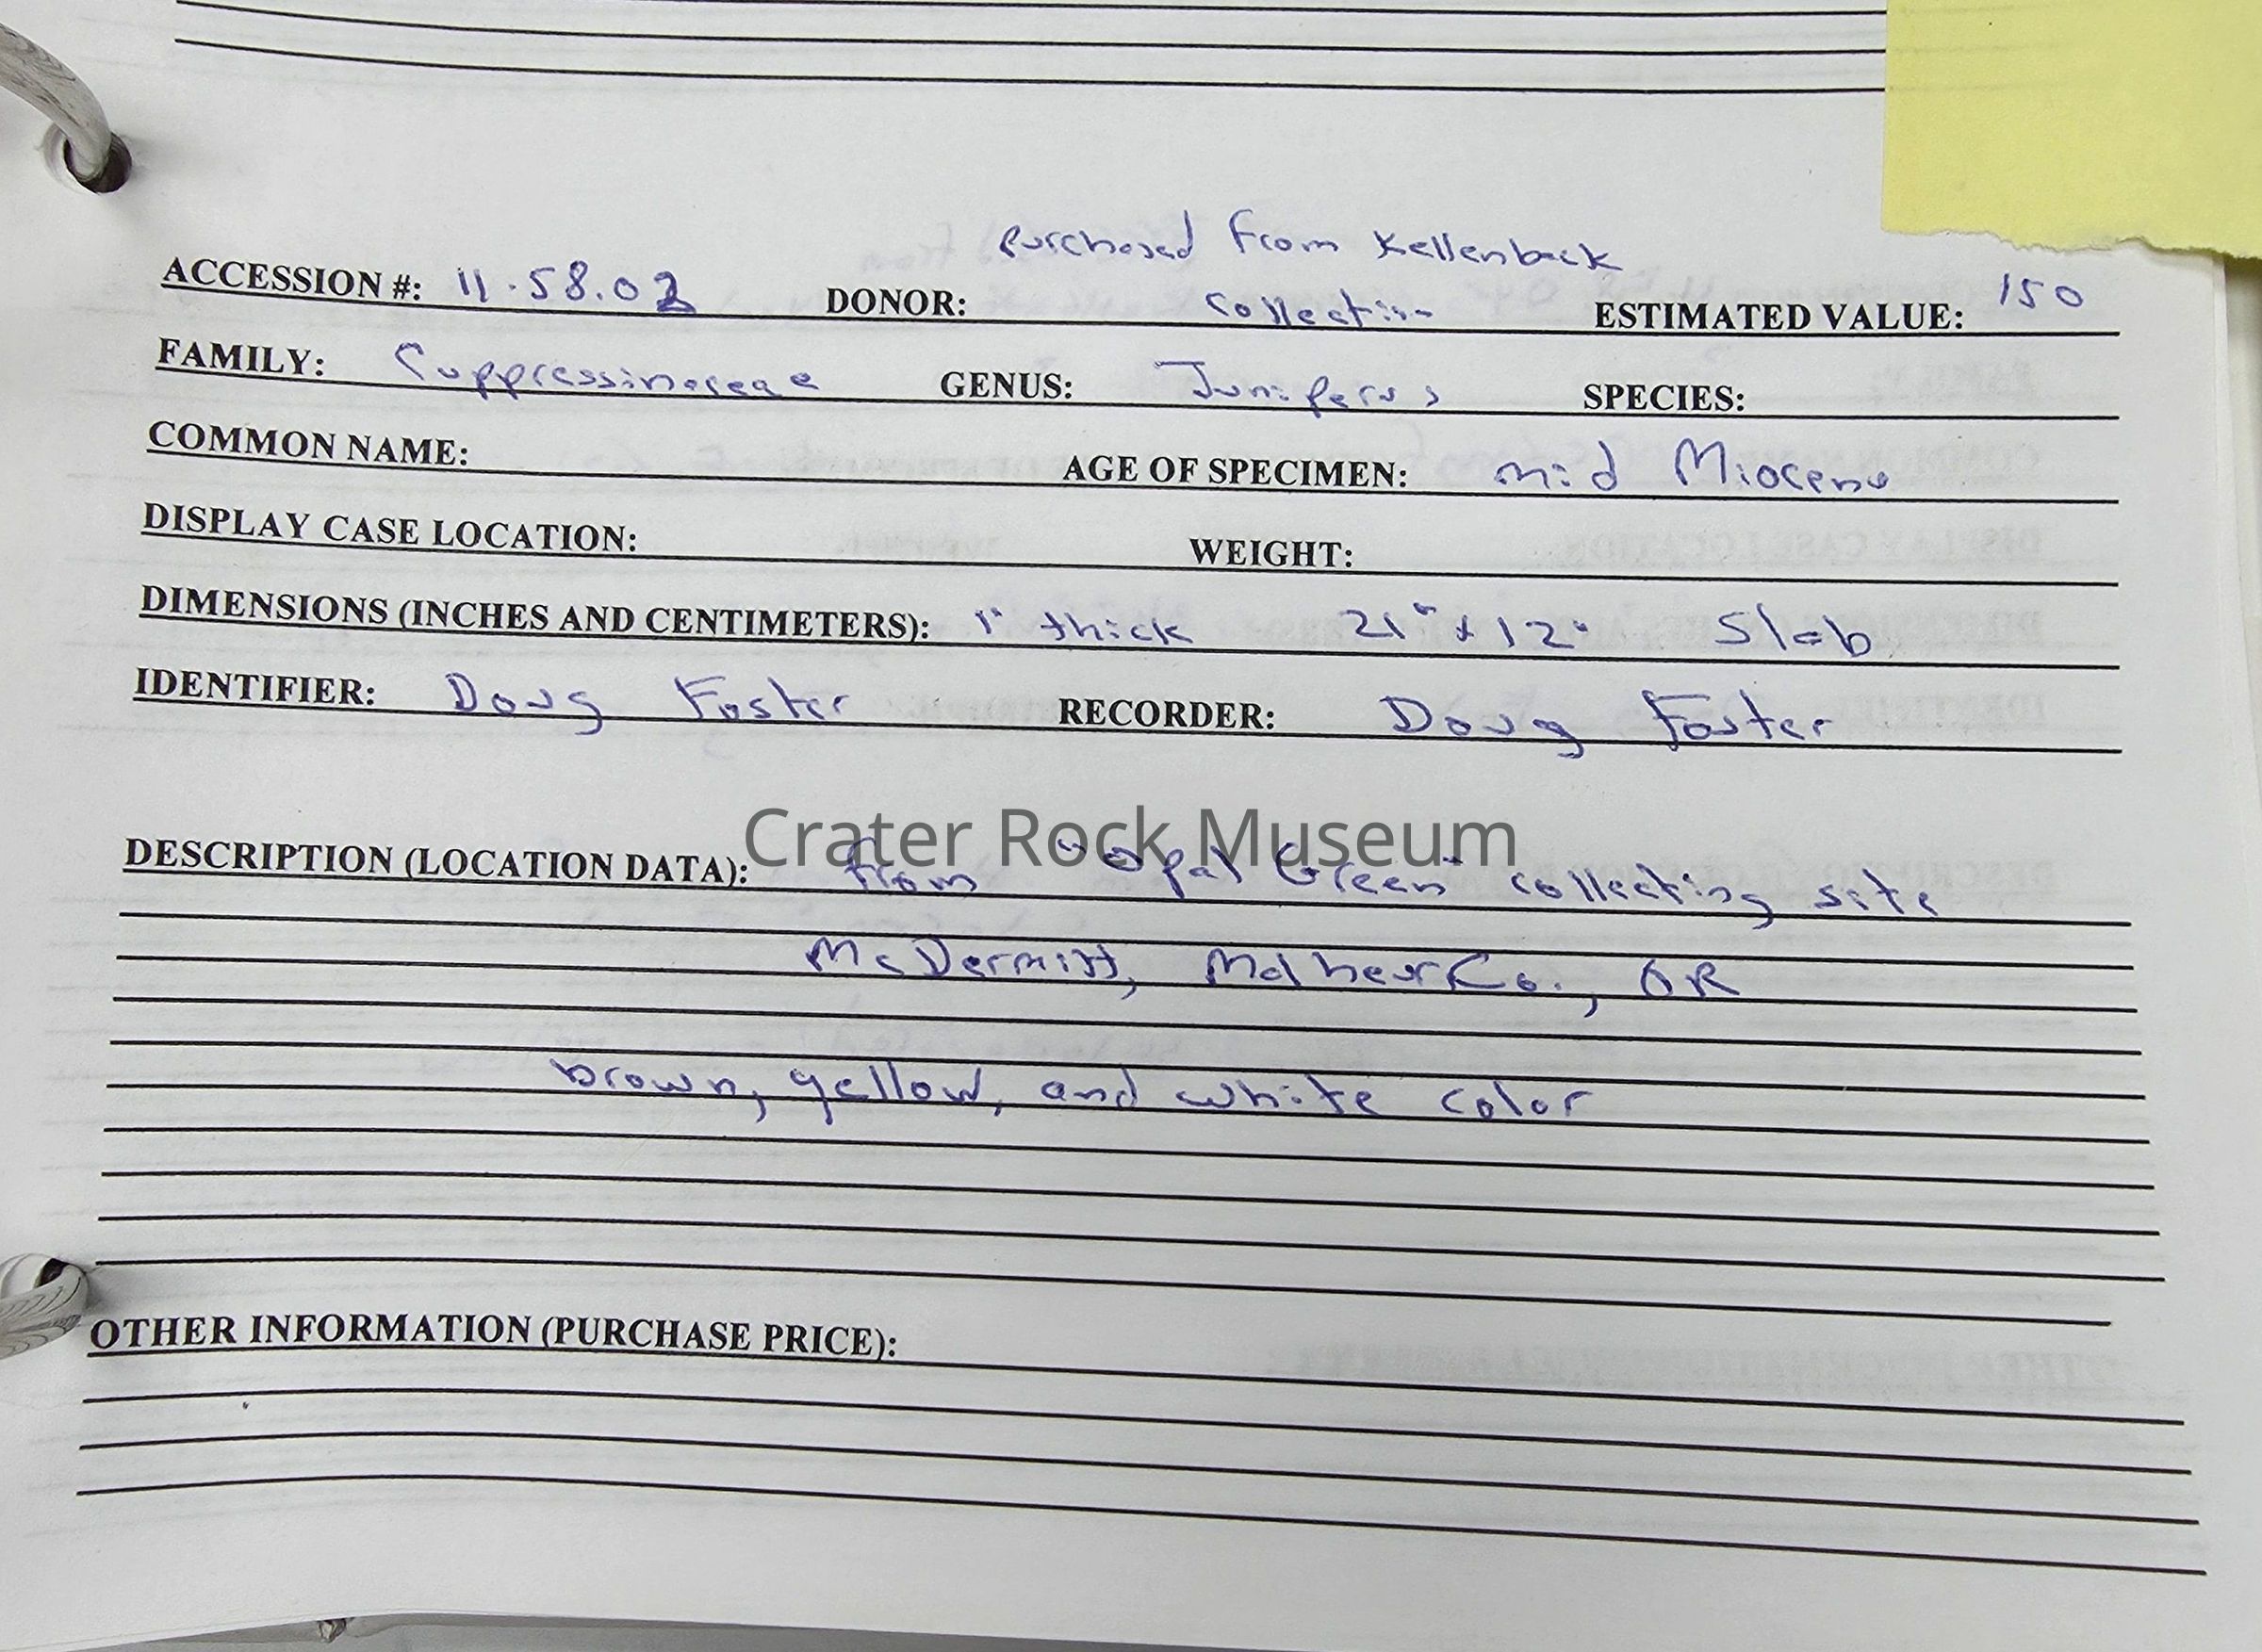 purchased from Kellenback
ACCESSION #: 11.58.02 DONOR: collection ESTIMATED VALUE: 150
FAMILY: Cuppressinaceae GENUS: Juniperus SPECIES:
COMMON NAME: AGE OF SPECIMEN: mid Miocene
DISPLAY CASE LOCATION: WEIGHT:
DIMENSIONS (INCHES AND CENTIMETERS): 1" thick 21" x 12" Slab
IDENTIFIER: Doug Foster RECORDER: Doug Foster
Crater Rock Museum
DESCRIPTION (LOCATION DATA): from "Opal Green" collecting site
McDermitt, Malheur Co., OR
brown, yellow, and white color
OTHER INFORMATION (PURCHASE PRICE):